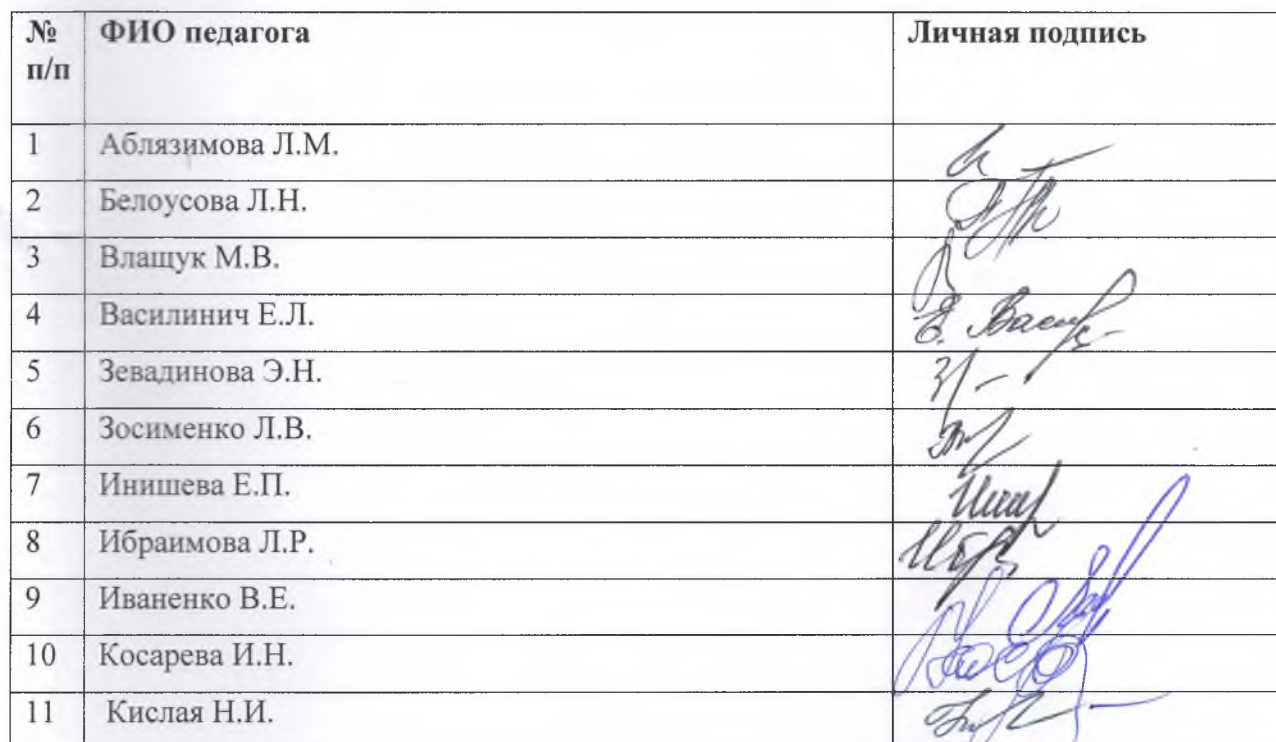 № п/п ФИО педагога Личная подпись
1 Аблязимова Л.М.
2 Белоусова Л.Н.
3 Влащук М.В.
4 Василинич Е.Л. Е. Васи
5 Зевадинова Э.Н.
6 Зосименко Л.В.
7 Инишева Е.П.
8 Ибраимова Л.Р.
9 Иваненко В.Е.
10 Косарева И.Н.
11 Кислая Н.И.